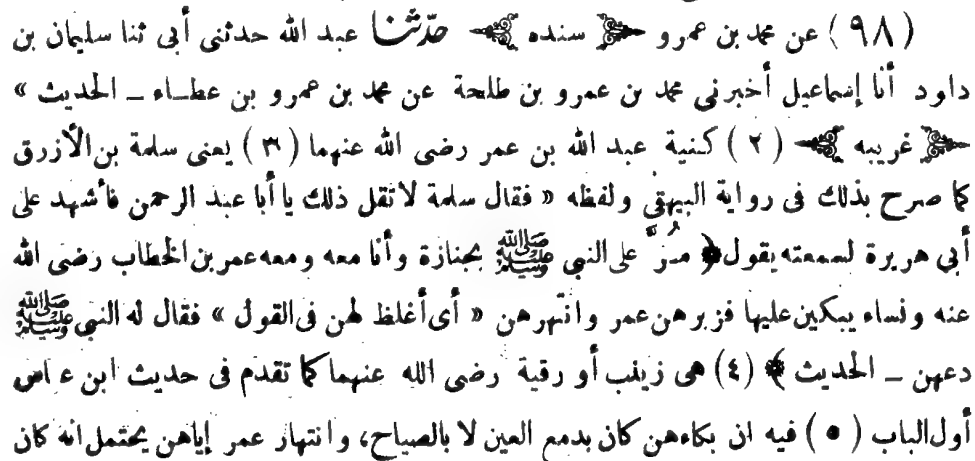 ( ٩٨ ) عن محمد بن عمرو ﴿ سنده ﴾ حدّثنا عبد الله حدثنى أبى ثنا سليمان بن
داود أنا إسماعيل أخبرنى محمد بن عمرو بن طلحة عن محمد بن عمرو بن عطاء – الحديث »
﴿ غريبه ﴾ ( ٢ ) كنية عبد الله بن عمر رضى الله عنهما ( ٣ ) يعنى سلمة بن الأزرق
كما صرح بذلك فى رواية البيهقي ولفظه « فقال سلمة لا تقل ذلك يا أبا عبد الرحمن فأشهد على
أبي هريرة لسمعته يقول ﴿ مُرَّ على النبى ﷺ بجنازة وأنا معه ومعه عمر بن الخطاب رضى الله
عنه ونساء يبكين عليها فزبرهن عمر وانتهرهن « أى أغلظ لهن فى القول » فقال له النبى ﷺ
دعهن – الحديث ﴾ (٤) هى زينب أو رقية رضى الله عنهما كما تقدم فى حديث ابن عباس
أول الباب ( ٥ ) فيه ان بكاءهن كان بدمع العين لا بالصياح، وانتهار عمر إياهن يحتمل انه كان